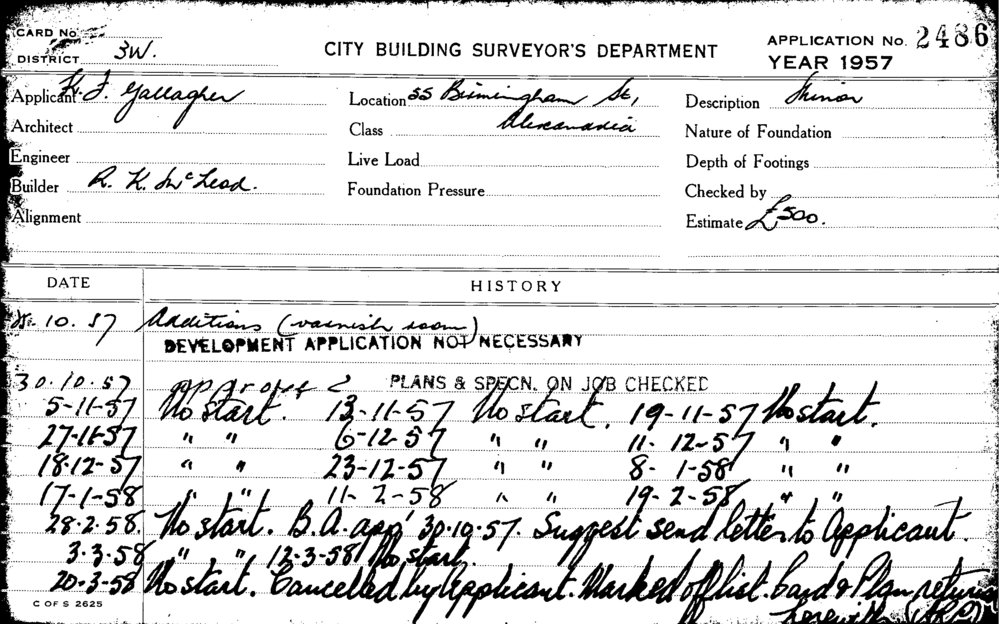 CARD No.
DISTRICT 3W.
CITY BUILDING SURVEYOR'S DEPARTMENT
APPLICATION No. 2486
YEAR 1957
Applicant K. J. Gallagher
Location 55 Birmingham St,
Description Minor
Architect
Class Alexandria
Nature of Foundation
Engineer
Live Load
Depth of Footings
Builder R. K. McLeod.
Foundation Pressure
Checked by
Alignment
Estimate £500.
DATE HISTORY
10. 57 Additions (varnish room)
DEVELOPMENT APPLICATION NOT NECESSARY
30.10.57 approved PLANS & SPECN. ON JOB CHECKED
5-11-57 No start. 13-11-57 No start. 19-11-57 No start.
27-11-57 " " 6-12-57 " " 11-12-57 " "
18-12-57 " " 23-12-57 " " 8-1-58 " "
17-1-58 " " 11-2-58 " " 19-2-58 " "
28.2.58. No start. B.A. app' 30.10.57. Suggest send letter to Applicant.
3.3.58 " " 12-3-58 No start.
20-3-58 No start. Cancelled by Applicant. Marked off list. Card & Plan returned
herewith
C OF S 2625